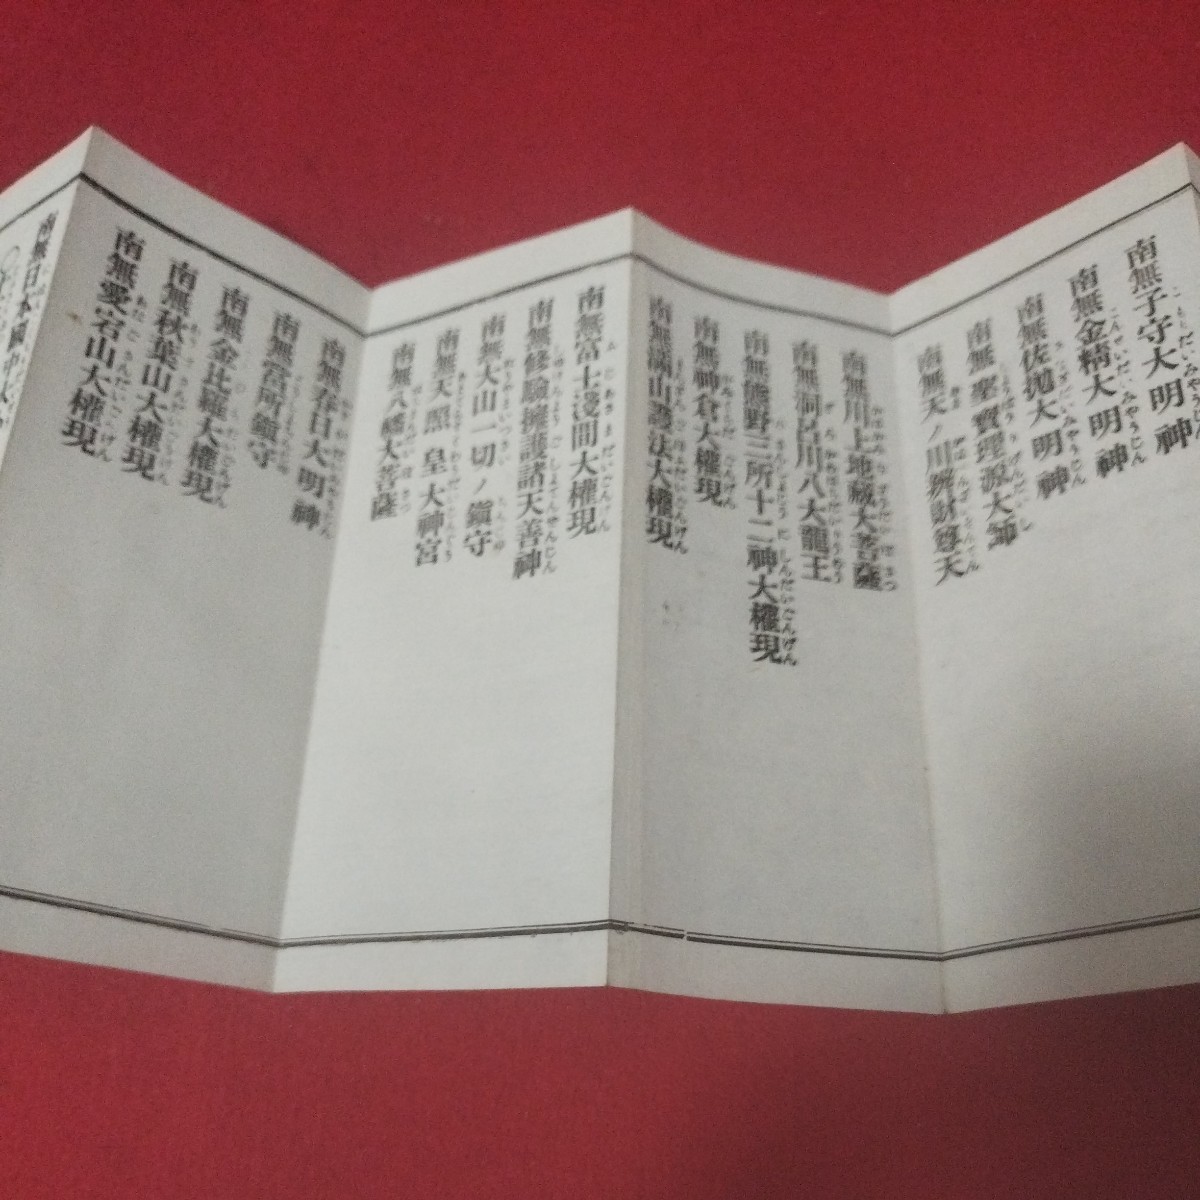 南無子守大明神
南無金精大明神
南無佐抛大明神
南無聖寶理源大師
南無天ノ川辨財尊天
南無川上地藏大菩薩
南無洞呂川八大龍王
南無熊野三所十二神大權現
南無神倉大權現
南無満山護法大權現
南無富士淺間大權現
南無修驗擁護諸天善神
南無大山一切ノ鎭守
南無天照皇大神宮
南無八幡大菩薩
南無春日大明神
南無宮所鎭守
南無金比羅大權現
南無秋葉山大權現
南無愛宕山大權現
南無日本國中